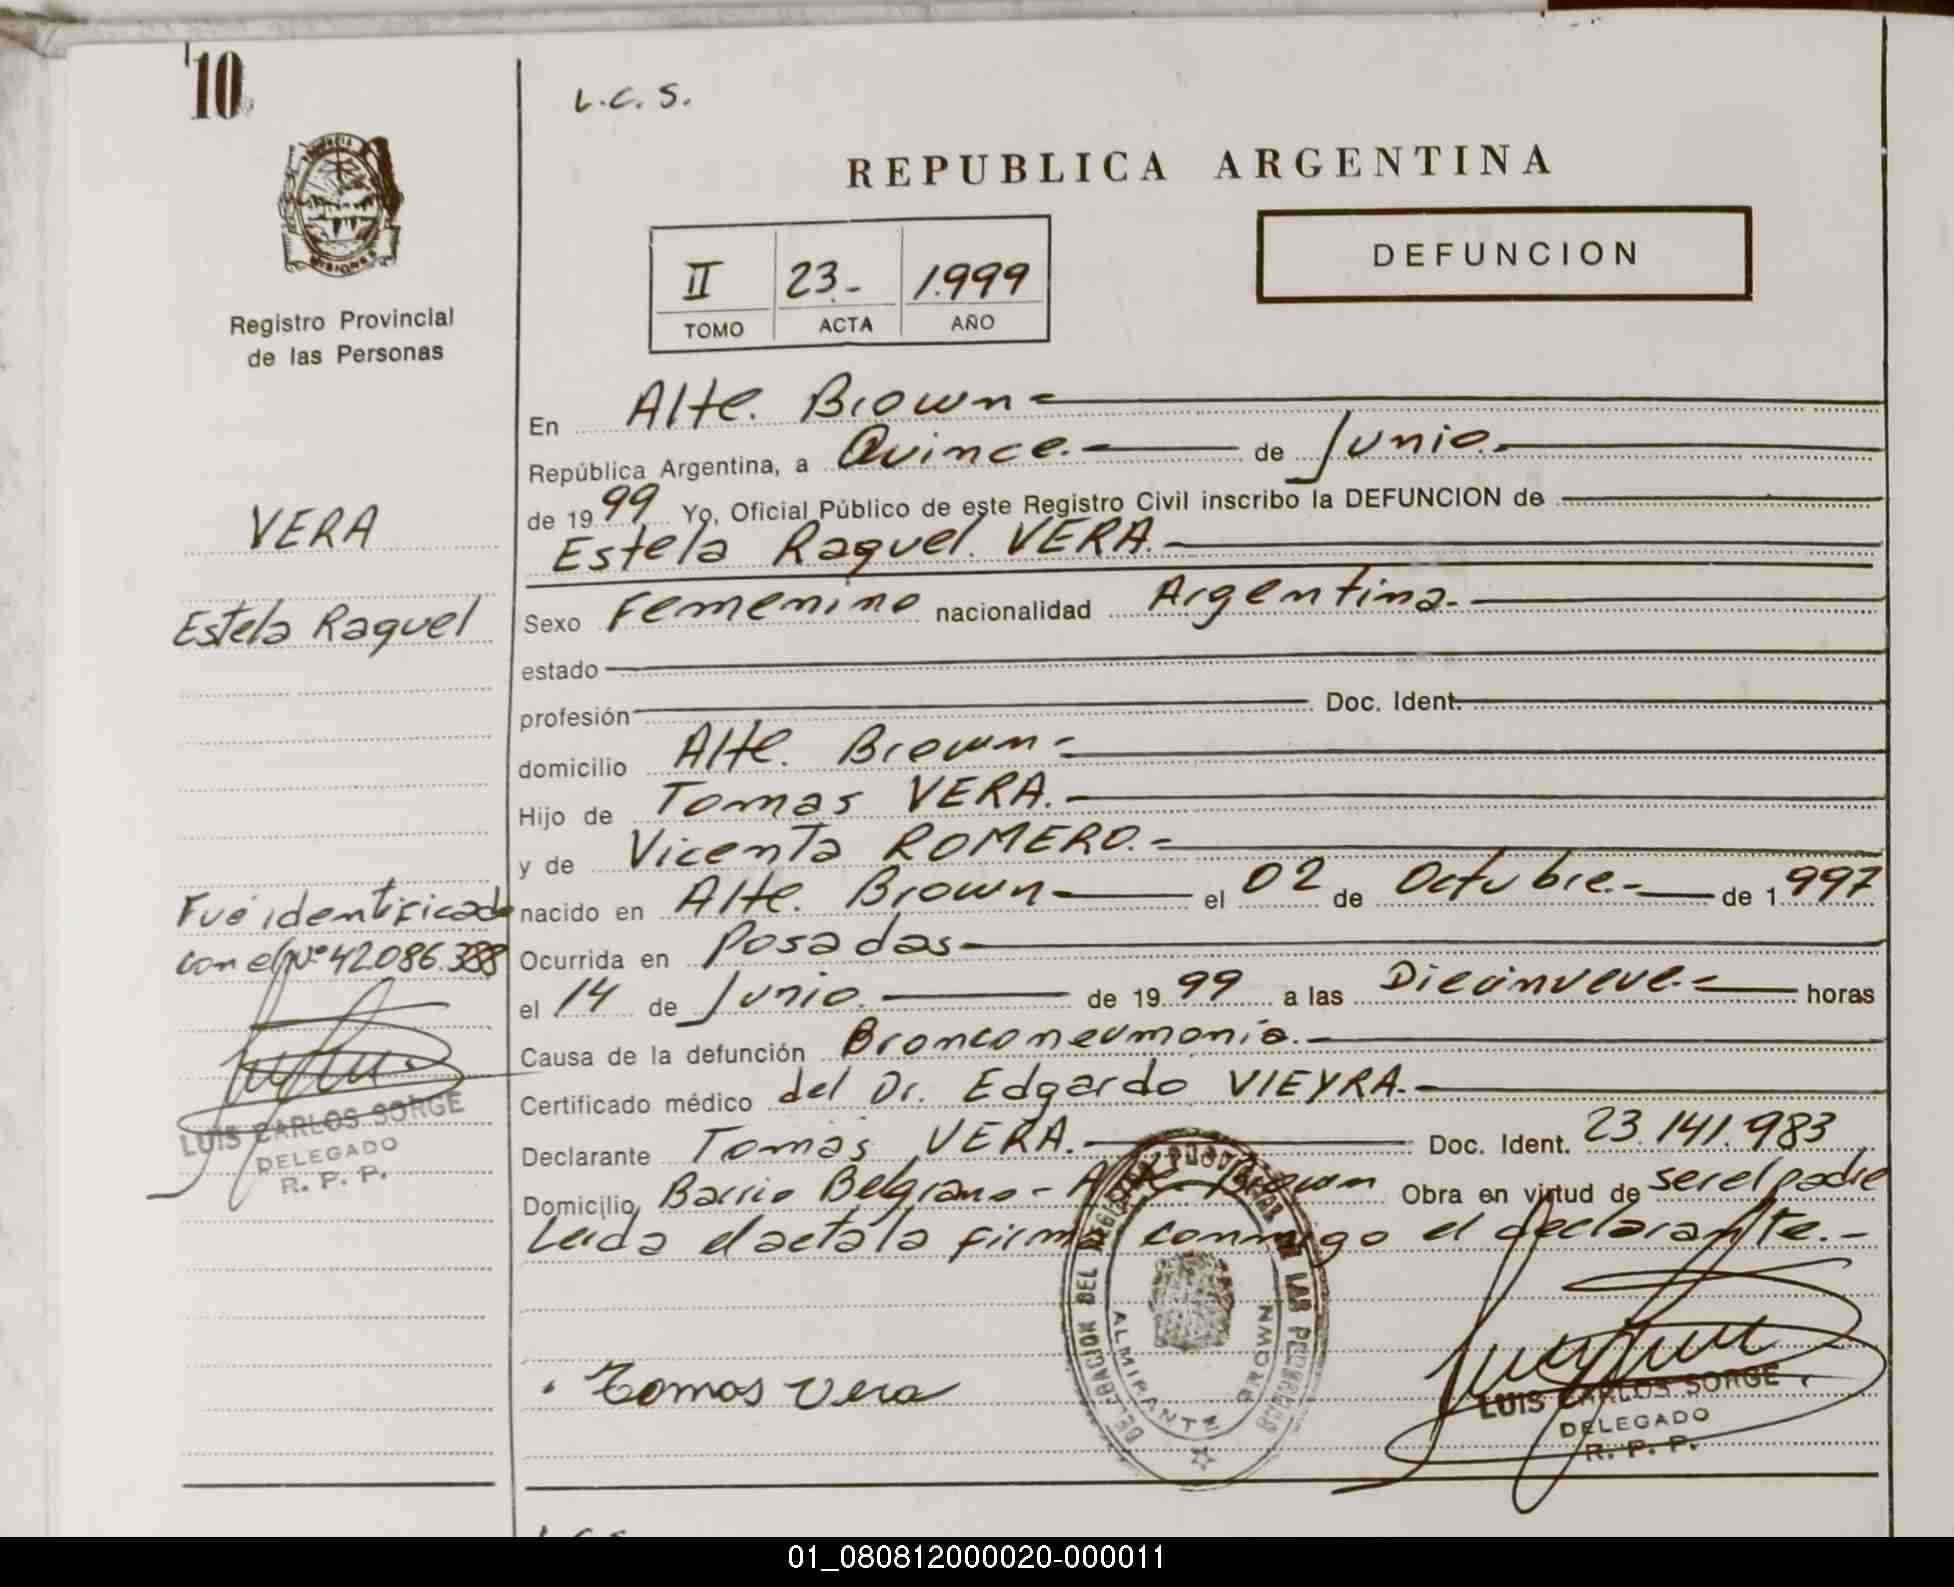 10
L.C.S.
REPUBLICA ARGENTINA
DEFUNCION
II 23.- 1.999
TOMO ACTA AÑO
MISIONES
Registro Provincial
de las Personas
VERA
Estela Raquel
Fué identificado
con el Nº 42.086.388
LUIS CARLOS SORGE
DELEGADO
R. P. P.
En Alte. Brown-
República Argentina, a Quince.- de Junio.-
de 19 99 Yo, Oficial Público de este Registro Civil inscribo la DEFUNCION de
Estela Raquel VERA.-
Sexo Femenino nacionalidad Argentina.-
estado
profesión Doc. Ident.
domicilio Alte. Brown-
Hijo de Tomas VERA.-
y de Vicenta ROMERO.-
nacido en Alte. Brown- el 02 de Octubre.- de 1 997
Ocurrida en Posadas-
el 14 de Junio.- de 19 99 a las Diecinueve.- horas
Causa de la defunción Bronconeumonia.-
Certificado médico del Dr. Edgardo VIEYRA.-
Declarante Tomas VERA.- Doc. Ident. 23.141.983
Domicilio Barrio Belgrano - Alte. Brown Obra en virtud de ser el padre
Leida el acta la firma conmigo el declarante.-
DELEGACION DEL REGISTRO PROVINCIAL DE LAS PERSONAS
ALMIRANTE BROWN
Tomas Vera
LUIS CARLOS SORGE
DELEGADO
R. P. P.
L.C.S.
01_080812000020-000011